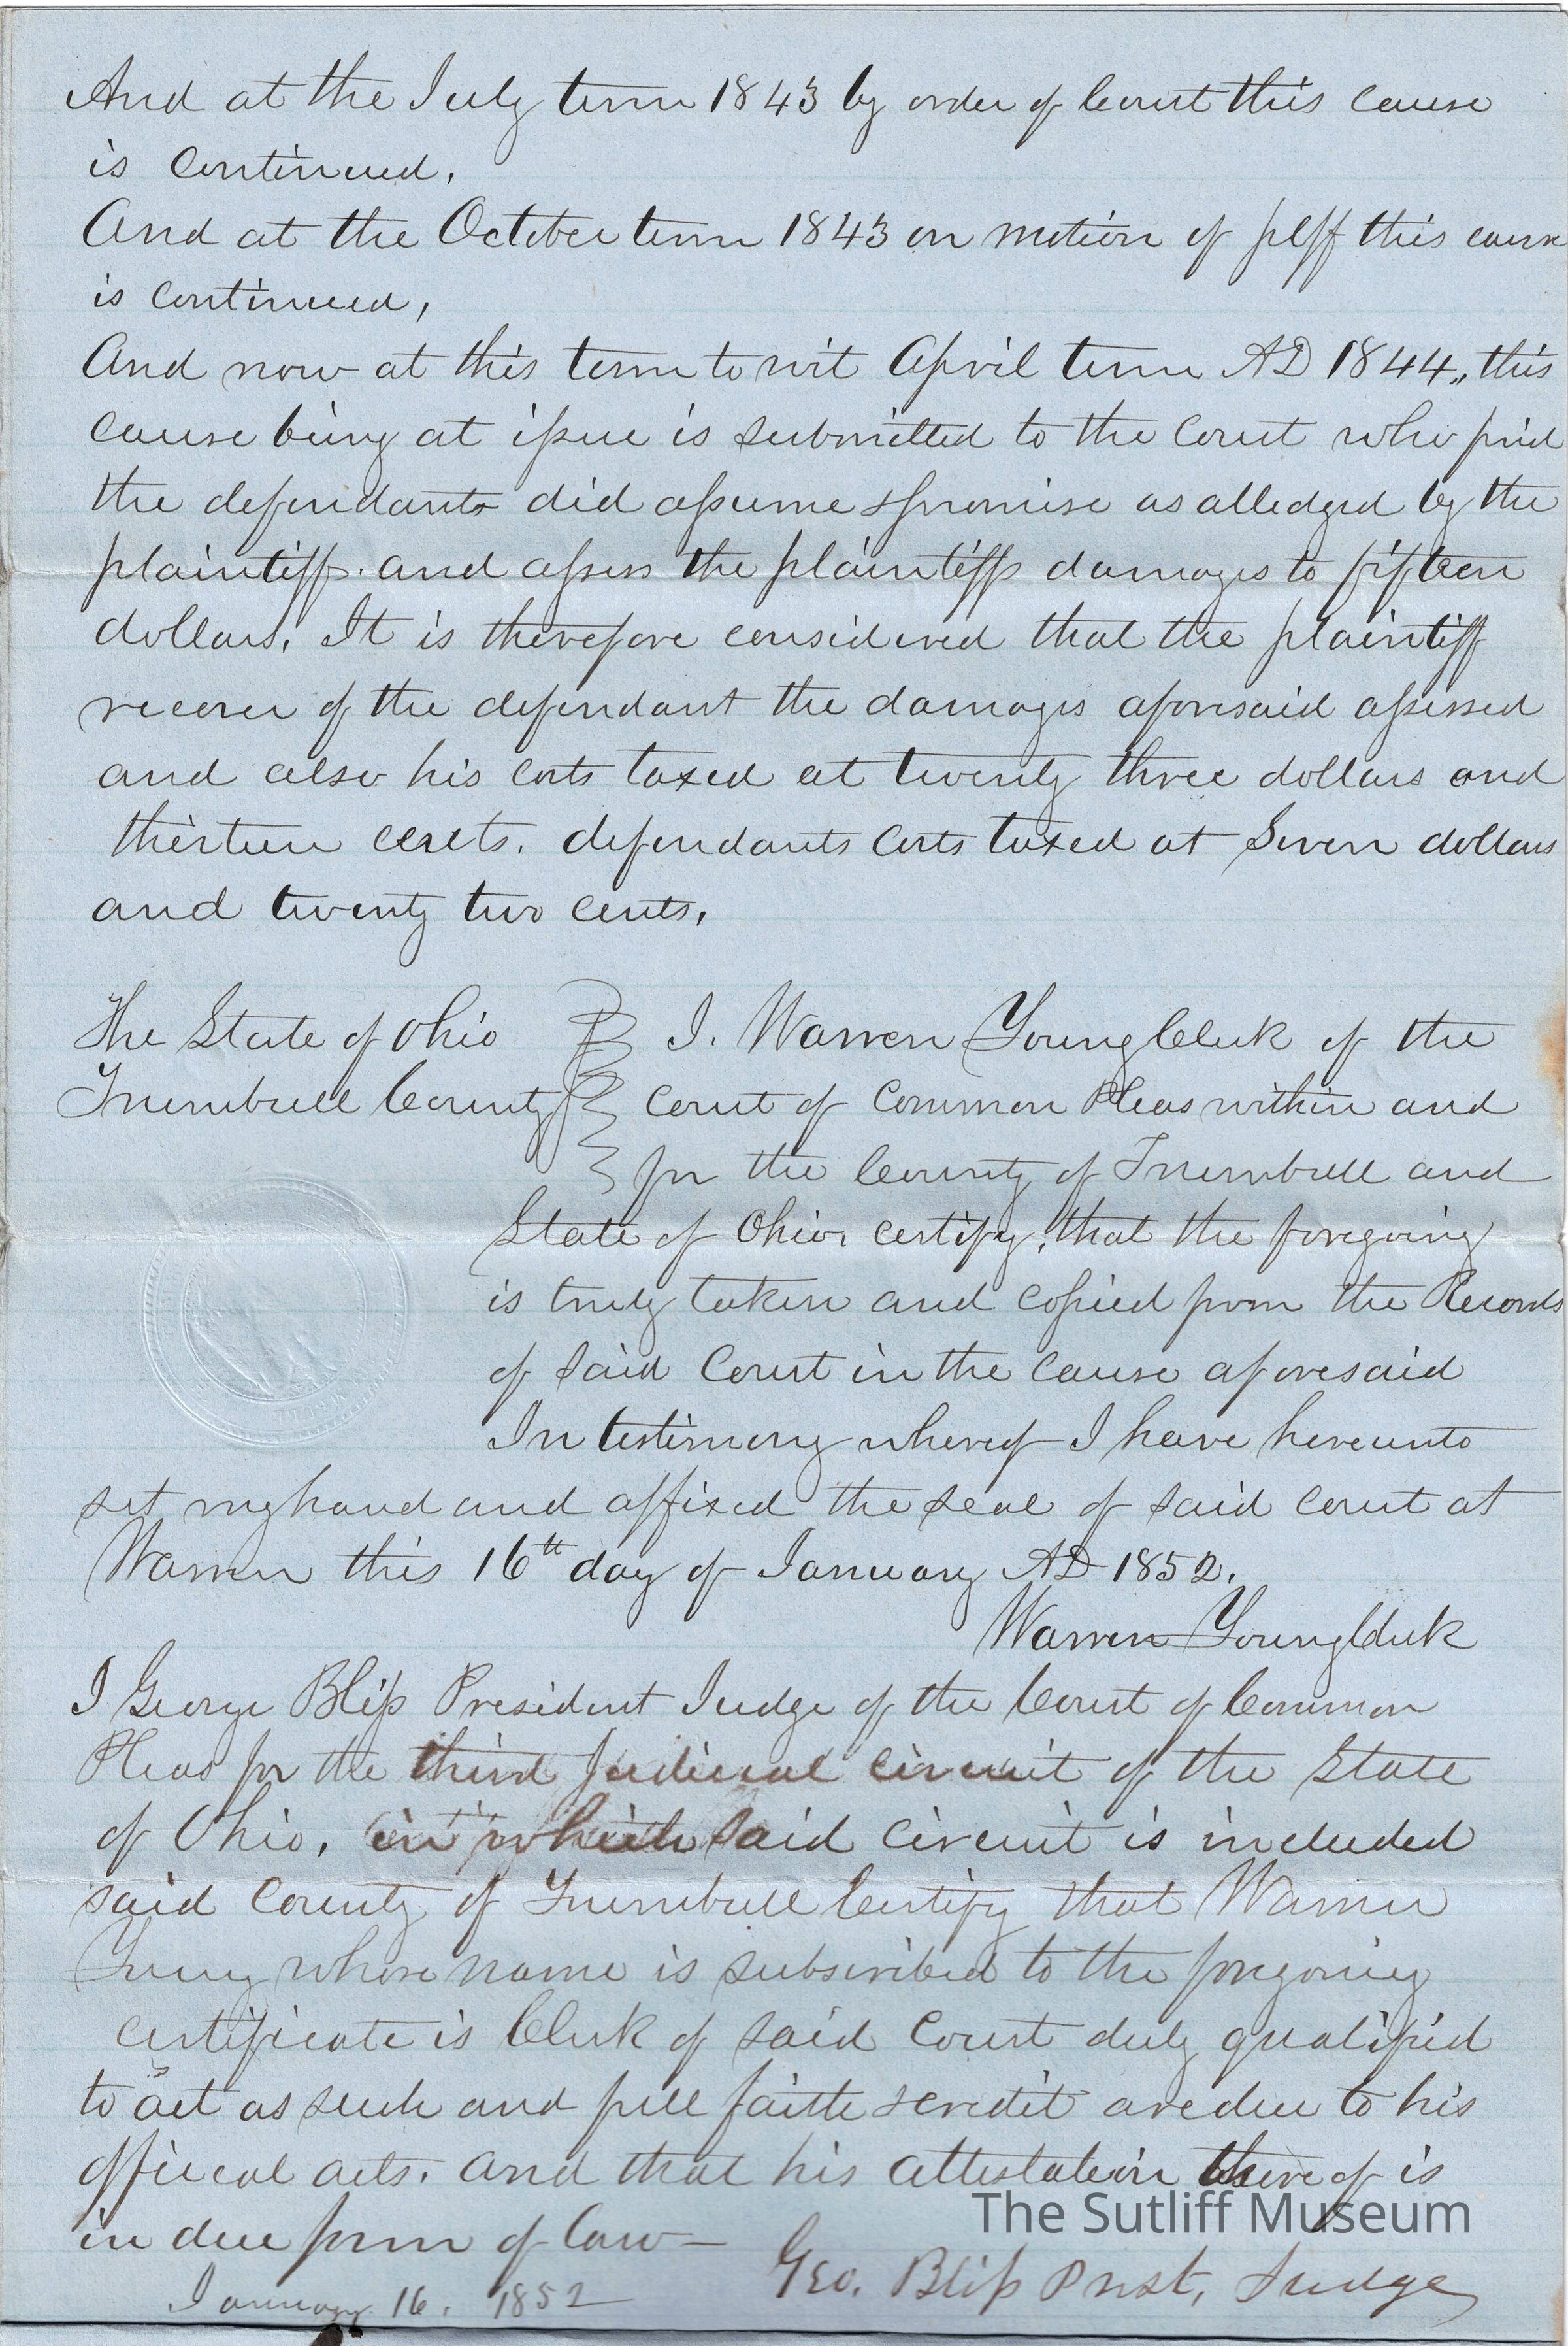 And at the July term 1843 by order of Court this cause
is continued.
And at the October term 1843 on motion of plff this cause
is continued,
And now at this term to wit April term AD 1844, this
cause being at issue is submitted to the Court who find
the defendants did assume & promise as alledged by the
plaintiff. and assess the plaintiffs damages to fifteen
dollars. It is therefore considered that the plaintiff
recover of the defendant the damages aforesaid assessed
and also his costs taxed at twenty three dollars and
thirteen cents. defendants costs taxed at Seven dollars
and twenty two cents.
The State of Ohio I. Warren Young Clerk of the
Trumbull County Court of Common Pleas within and
for the County of Trumbull and
State of Ohio, certify, that the foregoing
is truly taken and copied from the Records
of said Court in the cause aforesaid
In testimony whereof I have hereunto
set my hand and affixed the seal of said court at
Warren this 16th day of January AD 1852.
Warren Young Clerk
I George Bliss President Judge of the Court of Common
Pleas for the third Judicial circuit of the State
of Ohio, in which said circuit is included
said County of Trumbull Certify that Warren
Young whose name is subscribed to the foregoing
certificate is Clerk of said Court duly qualified
to act as such and full faith & credit are due to his
official acts. and that his attestation thereof is
in due form of law—
The Sutliff Museum
January 16. 1852 Geo. Bliss Prest, Judge